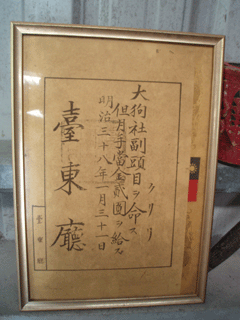 クリリ
大狗社副頭目ヲ命ス
但月手當金貳圓ヲ給ス
明治三十八年一月三十一日
臺東廳